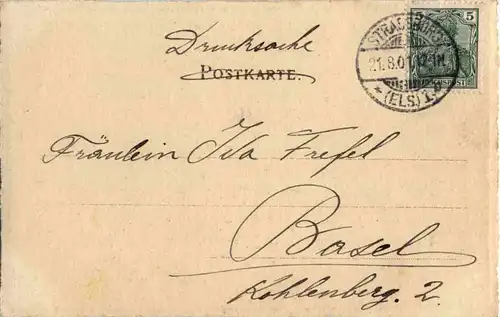 Drucksache
POSTKARTE.
STRASSBURG
21.8.01.
(ELS) 1.
5
Fräulein Ida Frefel
Basel
Kohlenberg. 2.